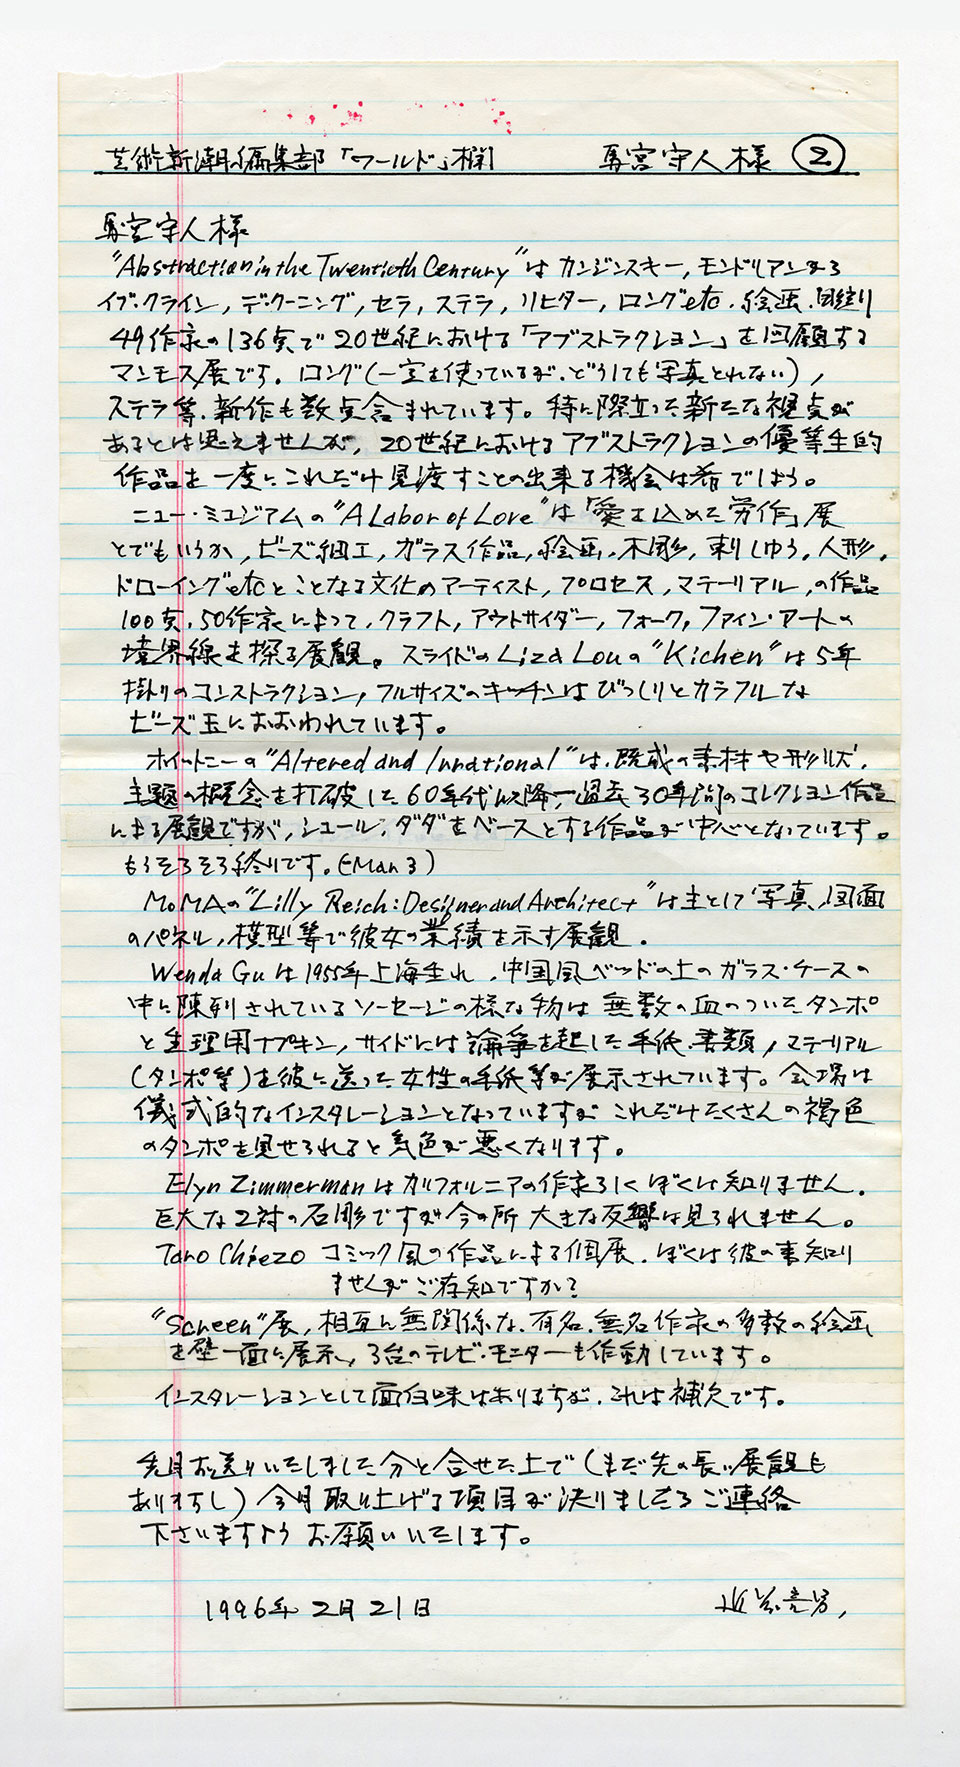 芸術新潮編集部「ワールド」欄 馬宮守人様 ②
馬宮守人様
"Abstraction in the Twentieth Century"は カンジンスキー, モンドリアンから
イブ・クライン, デ・クーニング, セラ, ステラ, リヒター, ロングetc. 絵画.
49作家の136点で20世紀における「アブストラクション」を回顧する
マンモス展です。ロング(一室を使っているが、どうしても写真とれない),
ステラ等、新作も数点含まれています。特に際立った新たな視点が
あるとは思えませんが, 20世紀におけるアブストラクションの優等生的
作品を一度にこれだけ見渡すことの出来る機会は希でしょう。
ニュー・ミュジアムの"A Labor of Love"は「愛を込めた労作」展
とでもいうか, ビーズ細工, ガラス作品, 絵画, 木彫, 刺しゅう, 人形,
ドローイングetcとことなる文化のアーティスト, プロセス, マテーリアル, の作品
100点, 50作家によって, クラフト, アウトサイダー, フォーク, ファイン・アートの
境界線を探る展観。スライドのLiza Louの"Kichen"は5年
掛りのコンストラクション, フルサイズのキッチンはびっしりとカラフルな
ビーズ玉におおわれています。
ホイットニーの"Altered and Irrational"は、既成の素材や形状,
主題の概念を打破した60年代以降, 過去30年間のコレクション作品
による展観ですが, シュール, ダダをベースとする作品が中心となっています。
もうそろそろ終りです。(Mar 3)
MoMAの"Lilly Reich: Designer and Architect"は主として写真, 図面
のパネル, 模型等で彼女の業績を示す展観.
Wenda Guは1955年上海生れ, 中国風ベッドの上のガラス・ケースの
中に陳列されているソーセージの様な物は無数の血のついたタンポ
と生理用ナプキン, サイドには論争を起した手紙, 書類, マテーリアル
(タンポ等)を彼に送った女性の手紙等が展示されています。会場は
儀式的なインスタレーションとなっていますが これだけたくさんの褐色
のタンポを見せられると気色が悪くなります。
Elyn Zimmermanはカリフォルニアの作家らしくぼくは知りません.
巨大な2対の石彫ですが今の所 大きな反響は見られません。
Taro Chiezo コミック風の作品による個展. ぼくは彼の事知り
ませんが ご存知ですか?
"Screen"展, 相互に無関係な, 有名, 無名作家の多数の絵画
を壁一面に展示, 3台のテレビ・モニターも作動しています。
インスタレーションとして面白味はありますが, これは補欠です。
先月お送りいたしました分と合せた上で(まだ先の長い展観も
ありますし)今月取り上げる項目が決りましたらご連絡
下さいますよう お願いいたします。
1996年2月21日